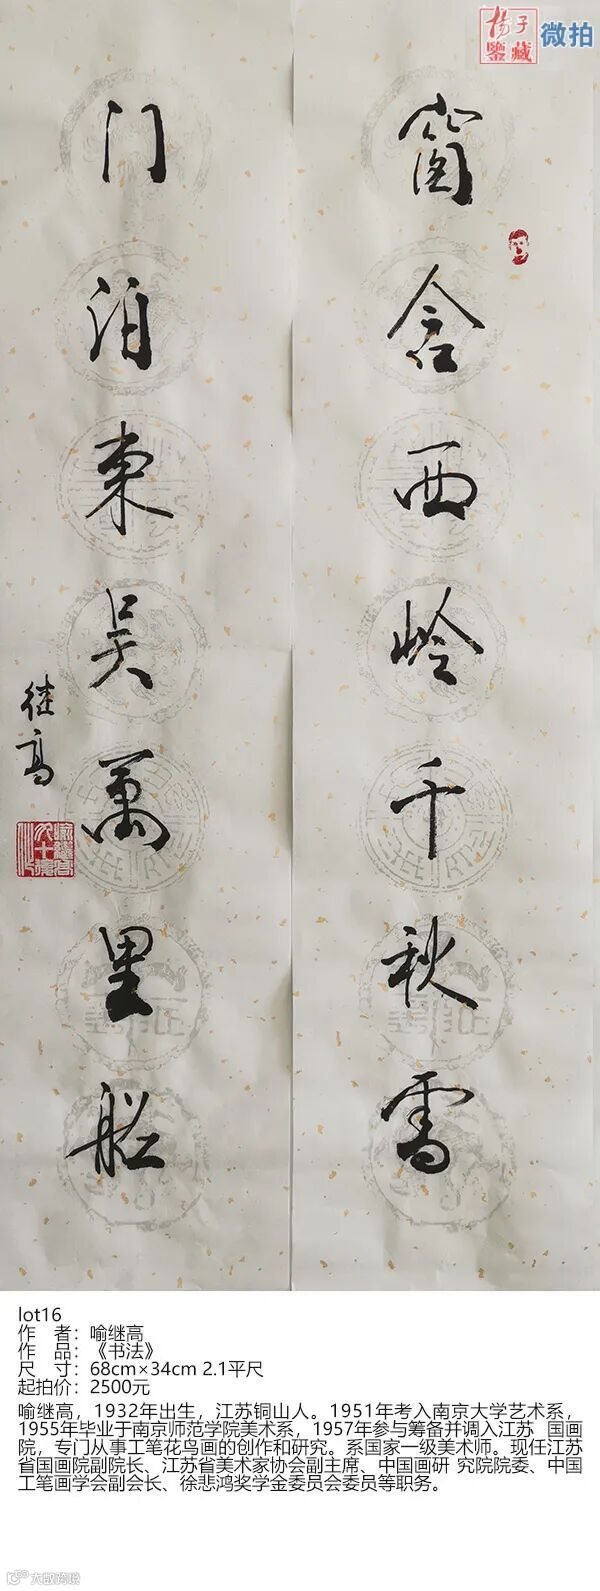 揚子
鑒藏
微拍
窗含西岭千秋雪
门泊東吴萬里船
继高
lot16
作 者：喻继高
作 品：《书法》
尺 寸：68cm×34cm 2.1平尺
起拍价：2500元
喻继高，1932年出生，江苏铜山人。1951年考入南京大学艺术系，
1955年毕业于南京师范学院美术系，1957年参与筹备并调入江苏 国画
院，专门从事工笔花鸟画的创作和研究。系国家一级美术师。现任江苏
省国画院副院长、江苏省美术家协会副主席、中国画研 究院院委、中国
工笔画学会副会长、徐悲鸿奖学金委员会委员等职务。
大数跨境